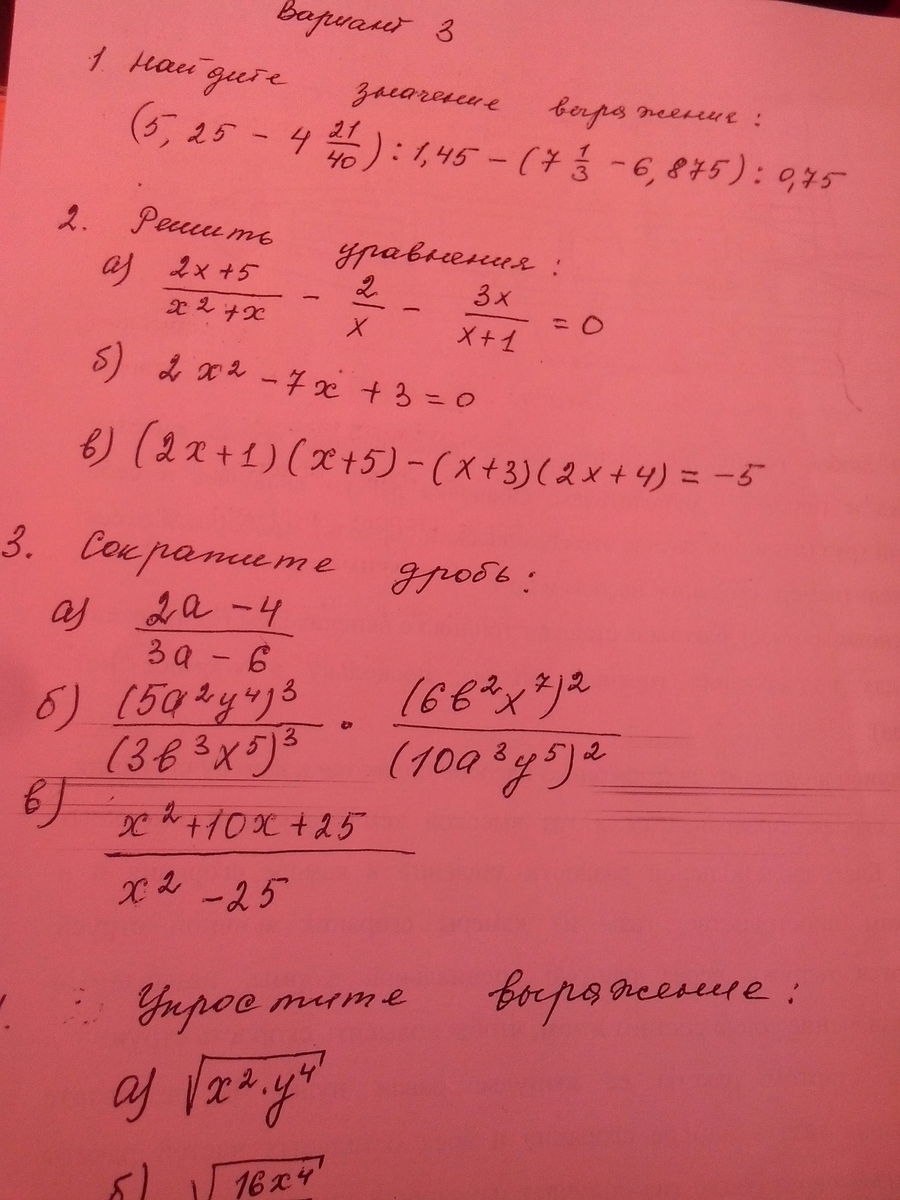 Вариант 3
1. Найдите значение выражение:
(5,25 - 4 21/40) : 1,45 - (7 1/3 - 6,875) : 0,75
2. Решить уравнения:
а) (2x+5)/(x²+x) - 2/x - 3x/(x+1) = 0
б) 2x² - 7x + 3 = 0
в) (2x+1)(x+5) - (x+3)(2x+4) = -5
3. Сократите дробь:
а) (2a - 4)/(3a - 6)
б) (5a²y⁴)³/(3в³x⁵)³ · (6в²x⁷)²/(10a³y⁵)²
в) (x²+10x+25)/(x² - 25)
Упростите выражение:
а) √(x²·y⁴)
б) √(16x⁴)